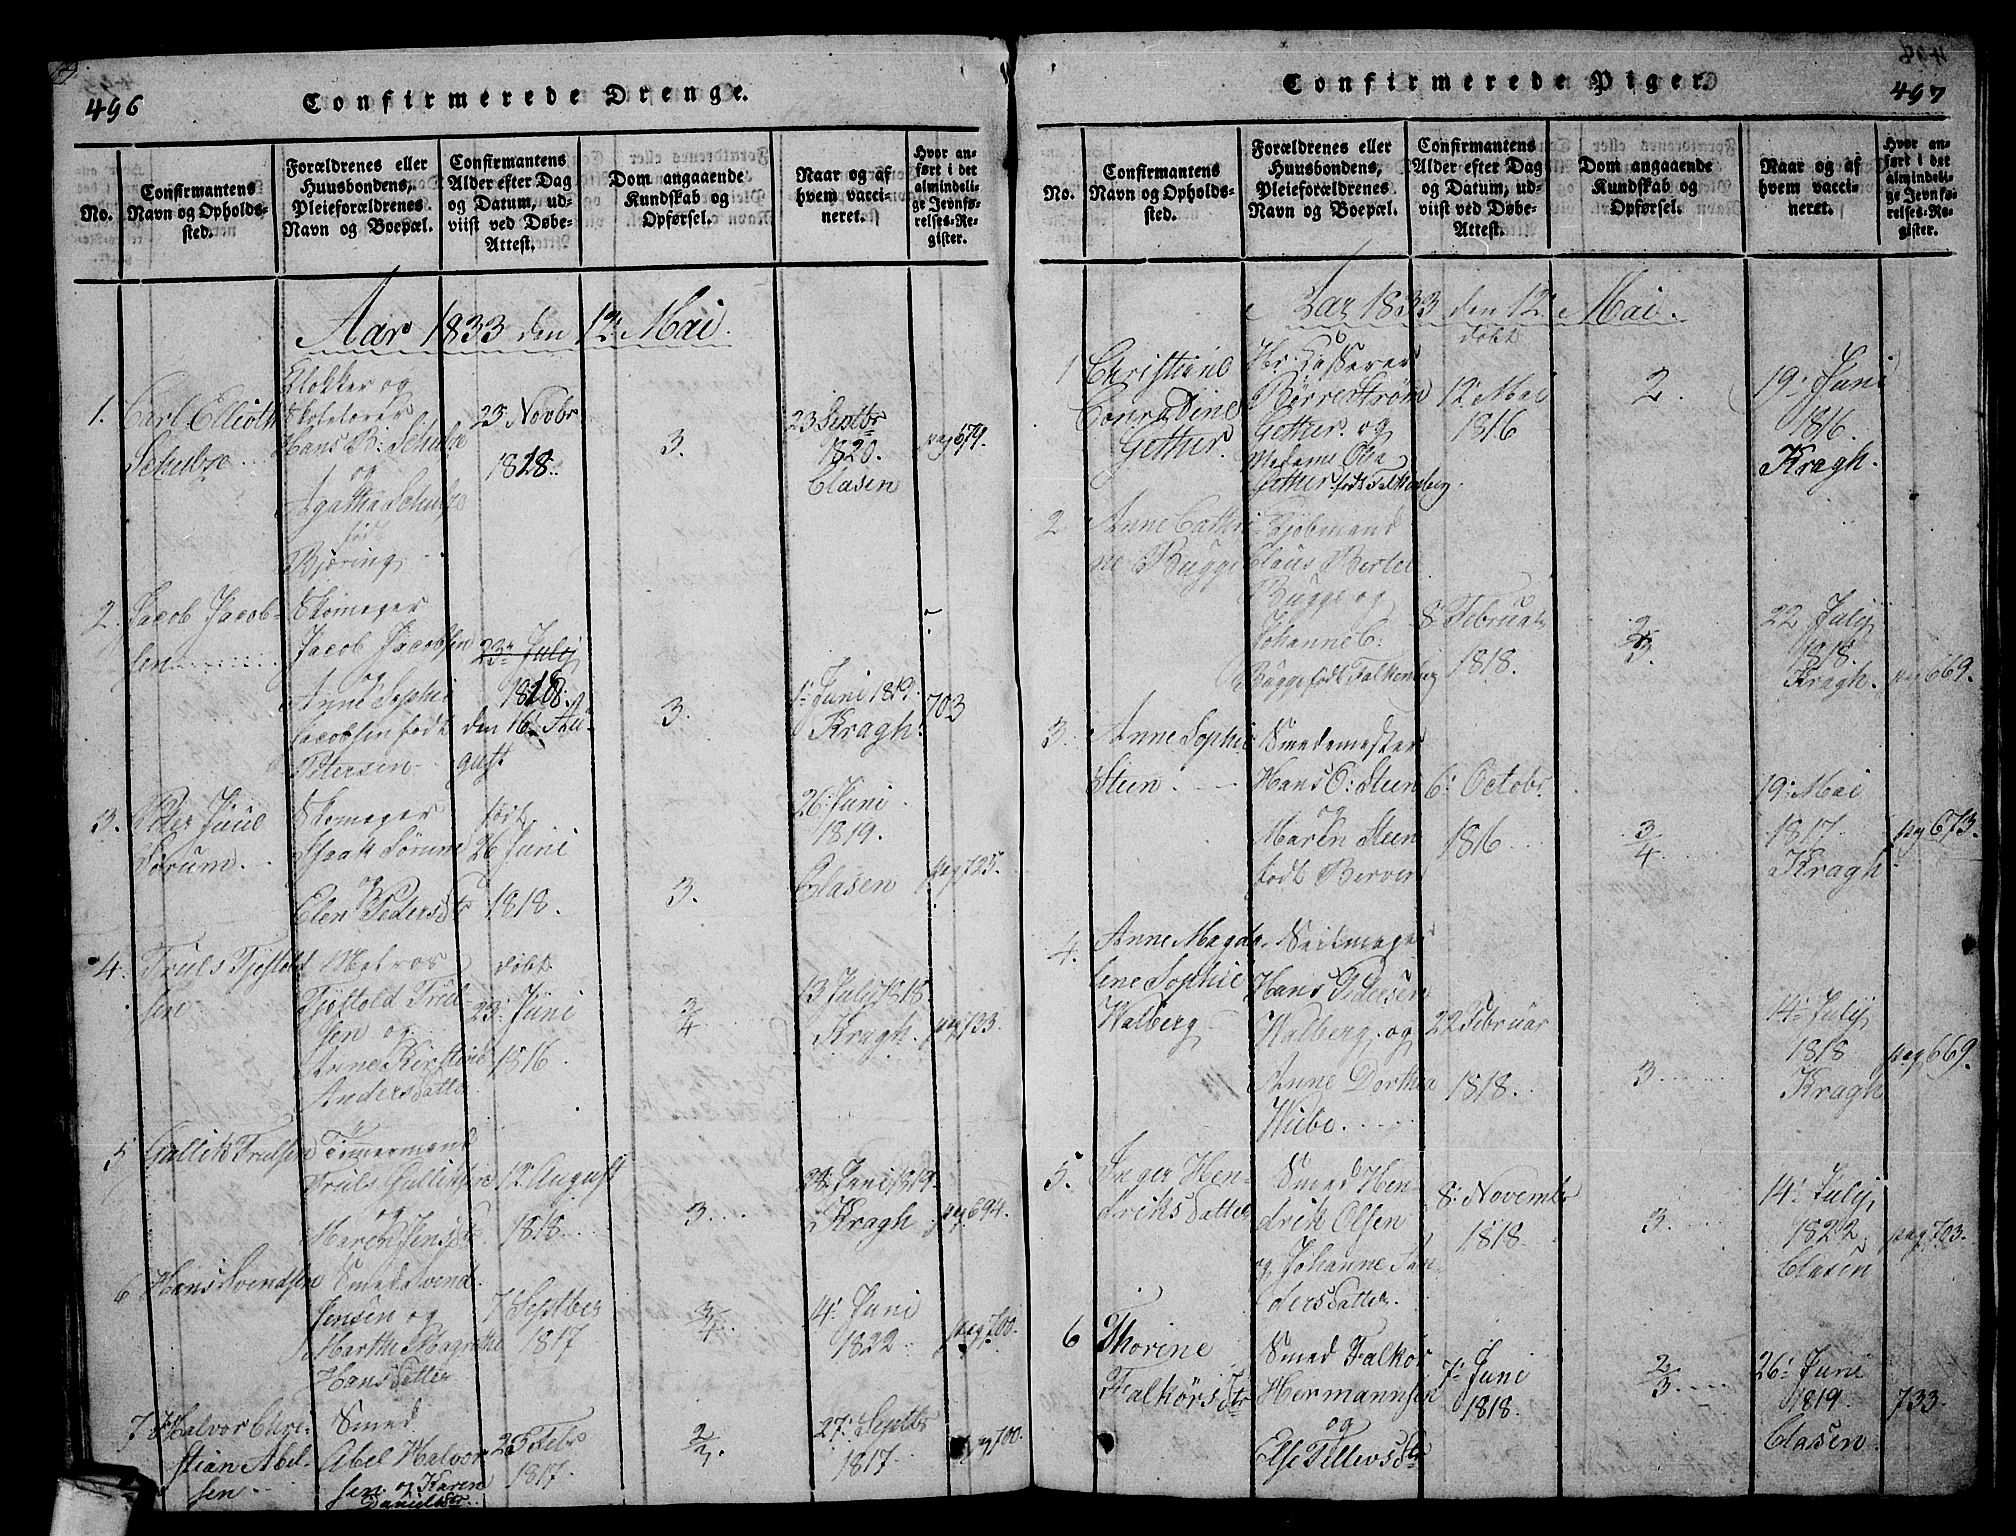 496
Confirmerede Drenge.
No.
Confirmantens
Navn og Opholds-
sted.
Forældrenes eller
Huusbondens,
Pleieforældrenes
Navn og Boepæl.
Confirmantens
Alder efter Dag
og Datum, ud-
viist ved Døbe-
Attest.
Dom angaaende
Kundskab og
Opførsel.
Naar og af
hvem vacci-
neret.
Hvor an-
ført i det
almindeli-
ge Jevnfø-
relses-Re-
gister.
Aar 1833 den 12 Mai.
1.
Carl Elliott
Schulze
Klokker og
Skolelærer
Hans B: Schulze
og
Agatha Schulze
født
Bjøring
23 Novbr
1818.
3.
23 Septbr
1820.
Clasen
pag 679.
2.
Jacob Jacob-
sen
Skomager
Jacob Jacobsen
og
Anne Sophie
Jacobsen født
Petersen
23 July
1818.
den 16 Au-
gust
3.
1 Juni 1819
Kragh.
703
3.
Peder Juul
Sørum
Skomager
Isaak Sørum
og
Elen Pedersdtr
født
26 Juni
1818.
3.
26: Juni
1819.
Clasen
pag 725.
4.
Truls Tjøstold-
sen
Matros
Tjøstold Trul-
sen og
Anne Kirstine
Andersdatter
døbt
23: Juni
1816.
3/4
13 July 1818
Kragh.
pag 733.
5
Gullik Trulsen
Tømmermand
Truls Gulliksen
og
Maren Jensdtr
12 August
1818.
3.
28: Juni 1819
Kragh
pag 694.
6
Hans Svendsen
Smed Svend
Jensen og
Marthe Magrethe
Hansdatter
7 Septber
1817
3/4.
4: Juni
1822
pag 700.
7
Halvor Chri-
stian Abel-
sen
Smed
Abel Halvor-
sen og Karen
Danielsdtr
23 Febr
1817.
2/3.
27: Septbr
1817.
pag 700.
497
Confirmerede Piger.
No.
Confirmantens
Navn og Opholds-
sted.
Forældrenes eller
Huusbondens,
Pleieforældrenes
Navn og Boepæl.
Confirmantens
Alder efter Dag
og Datum, ud-
viist ved Døbe-
Attest.
Dom angaaende
Kundskab og
Opførsel.
Naar og af
hvem vacci-
neret.
Hvor an-
ført i det
almindeli-
ge Jevnfø-
relses-Re-
gister.
Aar 1833 den 12 Mai.
1
Christiane
Conradine
Gether.
Hr: Kasserer
Børrestrøm
Gether og
Madame Olea
Gether født Falkenberg.
døbt
12 Mai
1816
2.
19: Juni
1816.
Kragh.
2
Anne Cathri-
ne Bugge
Kjøbmand
Claus Bertel
Bugge og
Johanne C.
Bugge født Falkenberg
8: Februar
1818.
2/3.
22 July
1818.
Kragh.
pag 669.
3.
Anne Sophie
Steen
Smedemester
Hans O: Steen
og
Maren Steen
født Berver
6: Octobr.
1816
3/4
19: Mai
1817.
Kragh
pag 673.
4.
Anne Magda-
lene Sophie
Walberg
Seilmager
Hans Pedersen
Walberg og
Anne Dorthea
Wiibe
22 Februar
1818.
3
14: July
1818
Kragh
pag 669.
5.
Inger Hen-
driksdatter
Smed Hen-
drik Olsen
og Johanne An-
dersdatter
8: November
1818.
3.
14: July
1822
Clasen
pag 703.
6
Thorine
Falkorsdtr
Smed Falkor
Hermannsen
og
Else Tellevsdtr
7: Juni
1818.
2/3.
26: Juni
1819.
Clasen.
733.